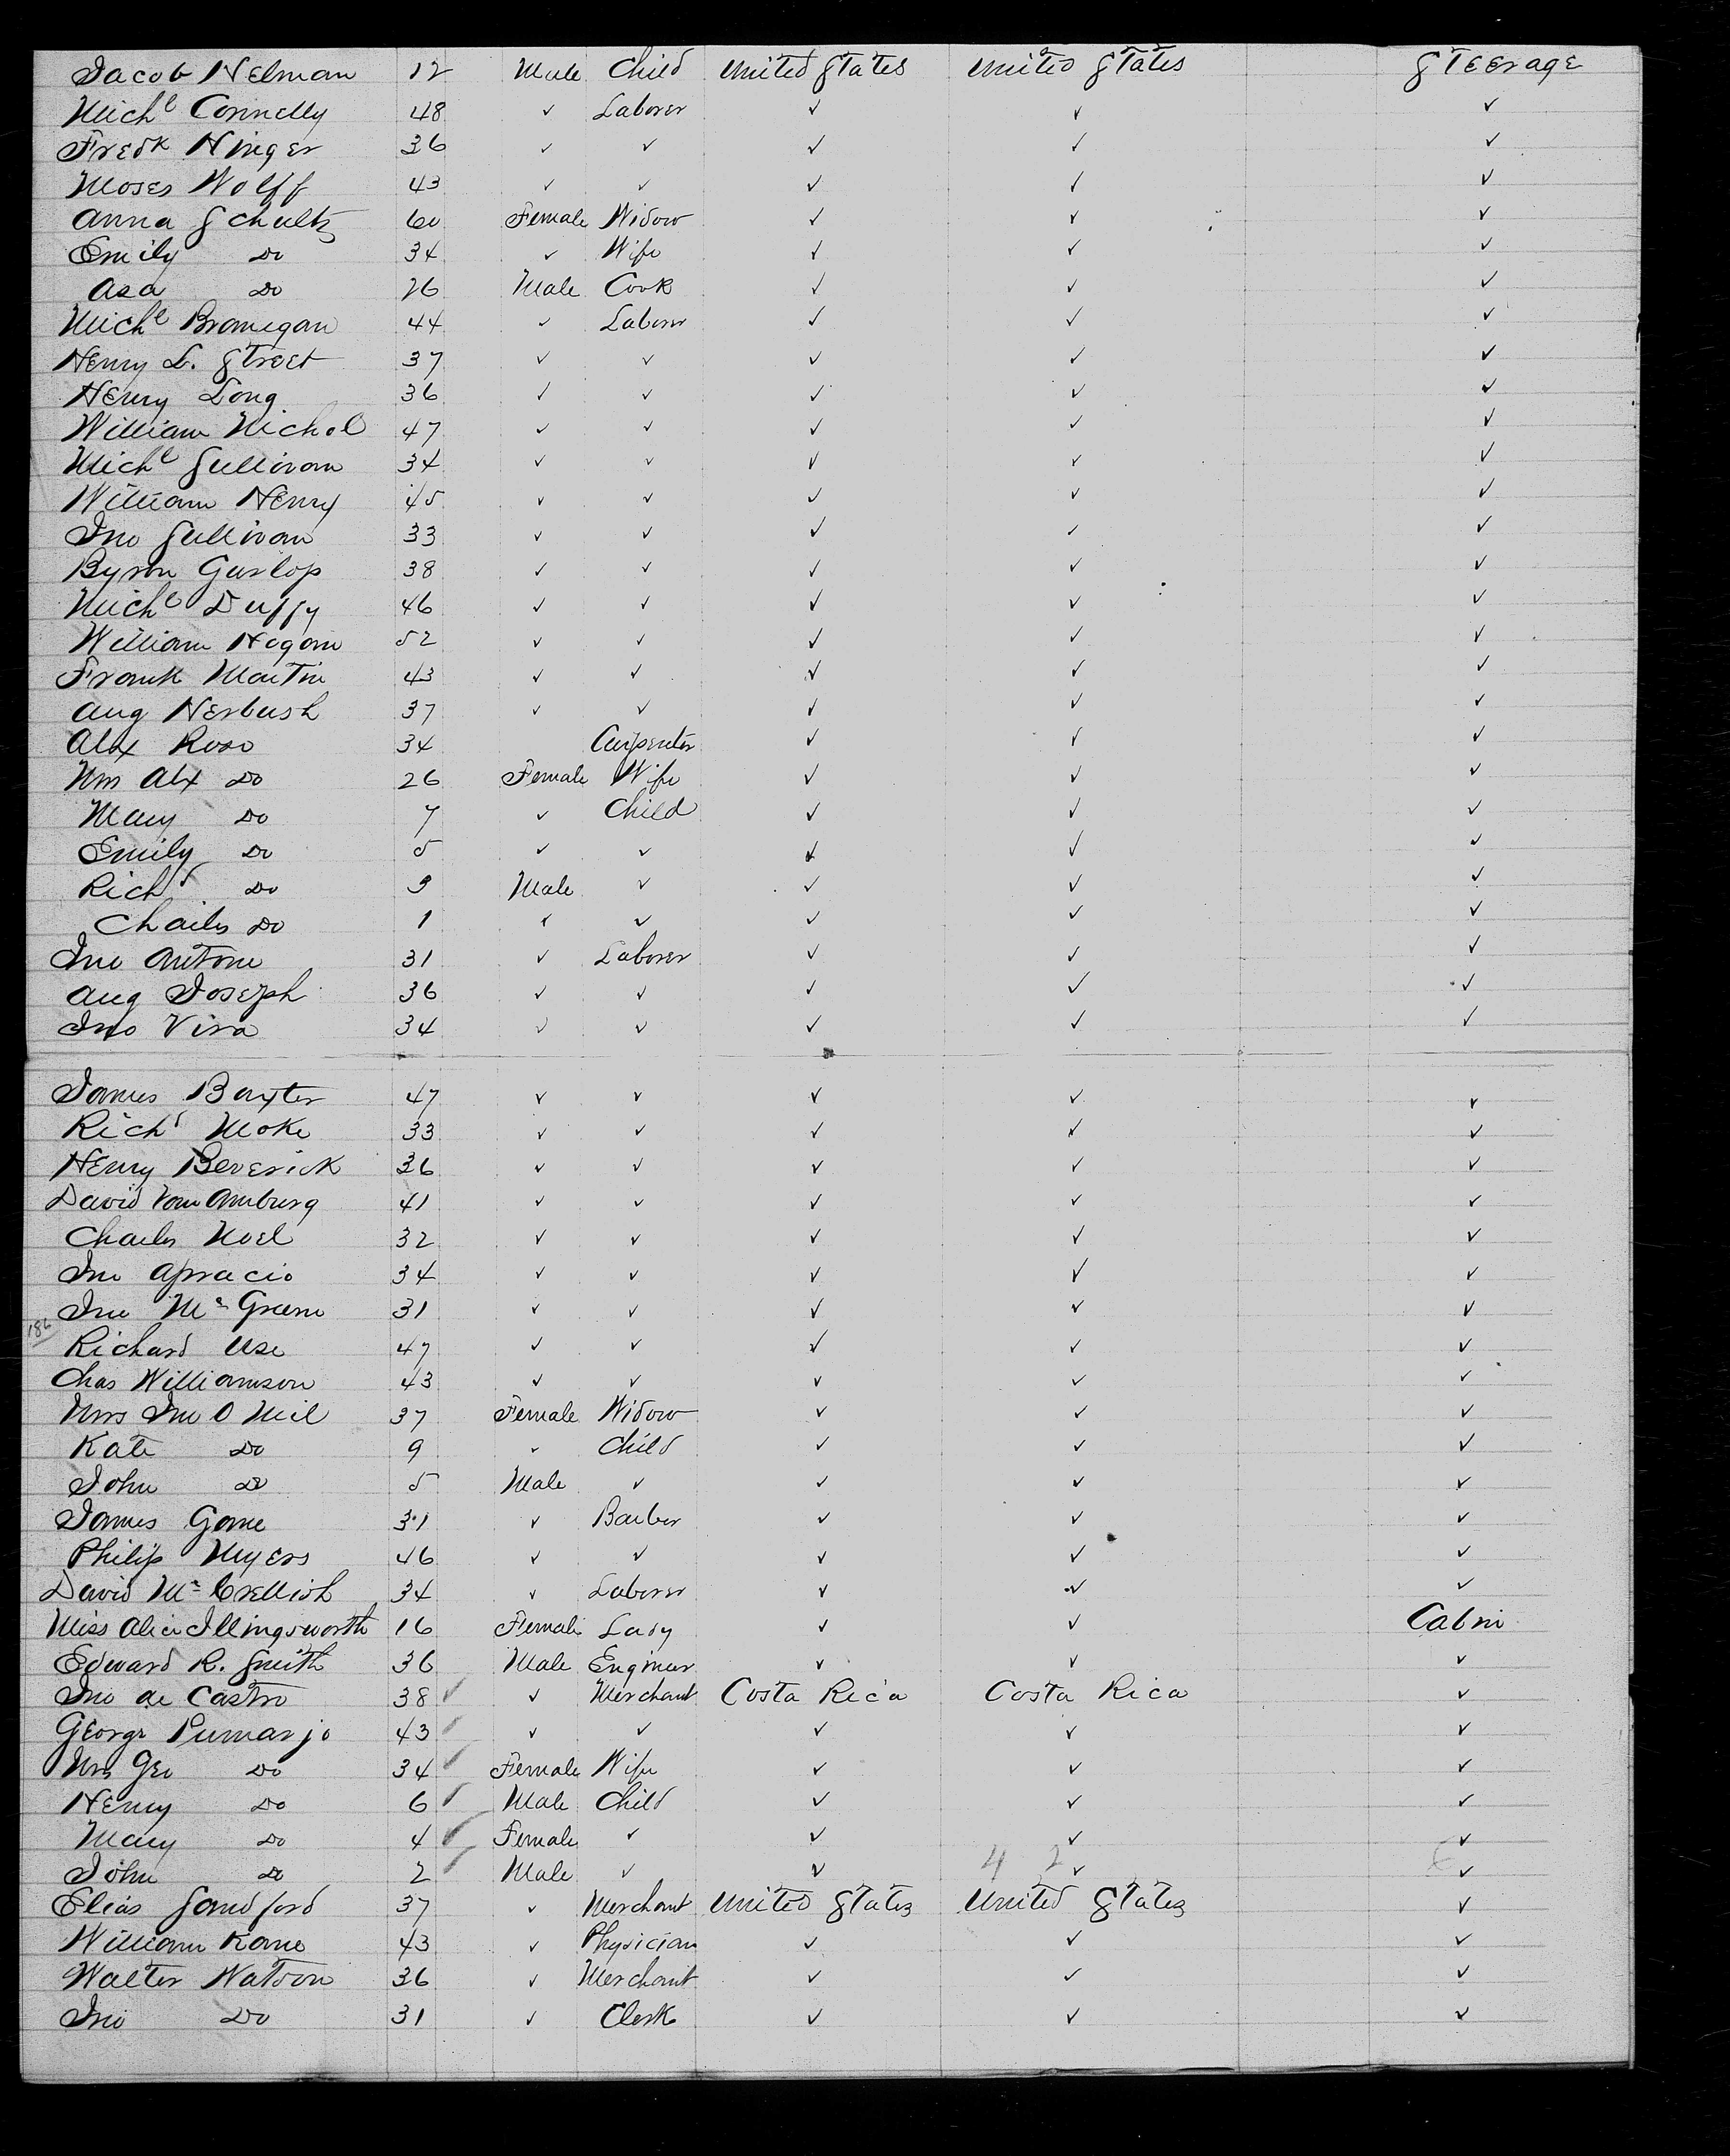 Jacob Helman 12 Male Child United States United States Steerage
Mich^l Connelly 48 ✓ Laborer ✓ ✓ ✓
Fredk Hinger 36 ✓ ✓ ✓ ✓ ✓
Moses Wolff 43 ✓ ✓ ✓ ✓ ✓
Anna Schultz 60 Female Widow ✓ ✓ ✓
Emily Do 34 ✓ Wife ✓ ✓ ✓
Asa Do 26 Male Cook ✓ ✓ ✓
Mich^l Branigan 44 ✓ Laborer ✓ ✓ ✓
Henry L. Street 37 ✓ ✓ ✓ ✓ ✓
Henry Long 36 ✓ ✓ ✓ ✓ ✓
William Nichol 47 ✓ ✓ ✓ ✓ ✓
Mich^l Sullivan 34 ✓ ✓ ✓ ✓ ✓
William Henry 45 ✓ ✓ ✓ ✓ ✓
Jno Sullivan 33 ✓ ✓ ✓ ✓ ✓
Byron Gurlop 38 ✓ ✓ ✓ ✓ ✓
Mich^l Duffy 46 ✓ ✓ ✓ ✓ ✓
William Hogan 52 ✓ ✓ ✓ ✓ ✓
Frank Martin 43 ✓ ✓ ✓ ✓ ✓
Aug Herbush 37 ✓ ✓ ✓ ✓ ✓
Alex Rose 34 Carpenter ✓ ✓ ✓
Mrs Alx Do 26 Female Wife ✓ ✓ ✓
Mary Do 7 ✓ Child ✓ ✓ ✓
Emily Do 5 ✓ ✓ ✓ ✓ ✓
Rich^d Do 3 Male ✓ ✓ ✓ ✓
Charles Do 1 ✓ ✓ ✓ ✓ ✓
Jno Antone 31 ✓ Laborer ✓ ✓ ✓
Aug Joseph 36 ✓ ✓ ✓ ✓ ✓
Jno Vira 34 ✓ ✓ ✓ ✓ ✓
James Baxter 47 ✓ ✓ ✓ ✓ ✓
Rich^d Moke 33 ✓ ✓ ✓ ✓ ✓
Henry Beverick 36 ✓ ✓ ✓ ✓ ✓
David Van Amburg 41 ✓ ✓ ✓ ✓ ✓
Charles Noel 32 ✓ ✓ ✓ ✓ ✓
Jno Apracio 34 ✓ ✓ ✓ ✓ ✓
Jno Mc Green 31 ✓ ✓ ✓ ✓ ✓
186
Richard Use 47 ✓ ✓ ✓ ✓ ✓
Chas Williamson 43 ✓ ✓ ✓ ✓ ✓
Mrs Jno O Neil 37 Female Widow ✓ ✓ ✓
Kate Do 9 ✓ Child ✓ ✓ ✓
John Do 5 Male ✓ ✓ ✓ ✓
James Game 31 ✓ Barber ✓ ✓ ✓
Philip Myers 46 ✓ ✓ ✓ ✓ ✓
David Mc Crellish 34 ✓ Laborer ✓ ✓ ✓
Miss Alice Illingsworth 16 Female Lady ✓ ✓ Cabin
Edward R. Smith 36 Male Engineer ✓ ✓ ✓
Jno de Castro 38 ✓ ✓ Merchant Costa Rica Costa Rica ✓
George Pumarjo 43 ✓ ✓ ✓ ✓ ✓ ✓
Mrs Geo Do 34 ✓ Female Wife ✓ ✓ ✓
Henry Do 6 ✓ Male Child ✓ ✓ ✓
Mary Do 4 ✓ Female ✓ ✓ ✓ ✓
John Do 2 ✓ Male ✓ ✓ 4 2 ✓ 6 ✓
Elias Sandford 37 ✓ Merchant United States United States ✓
William Kane 43 ✓ Physician ✓ ✓ ✓
Walter Watson 36 ✓ Merchant ✓ ✓ ✓
Jno Do 31 ✓ Clerk ✓ ✓ ✓